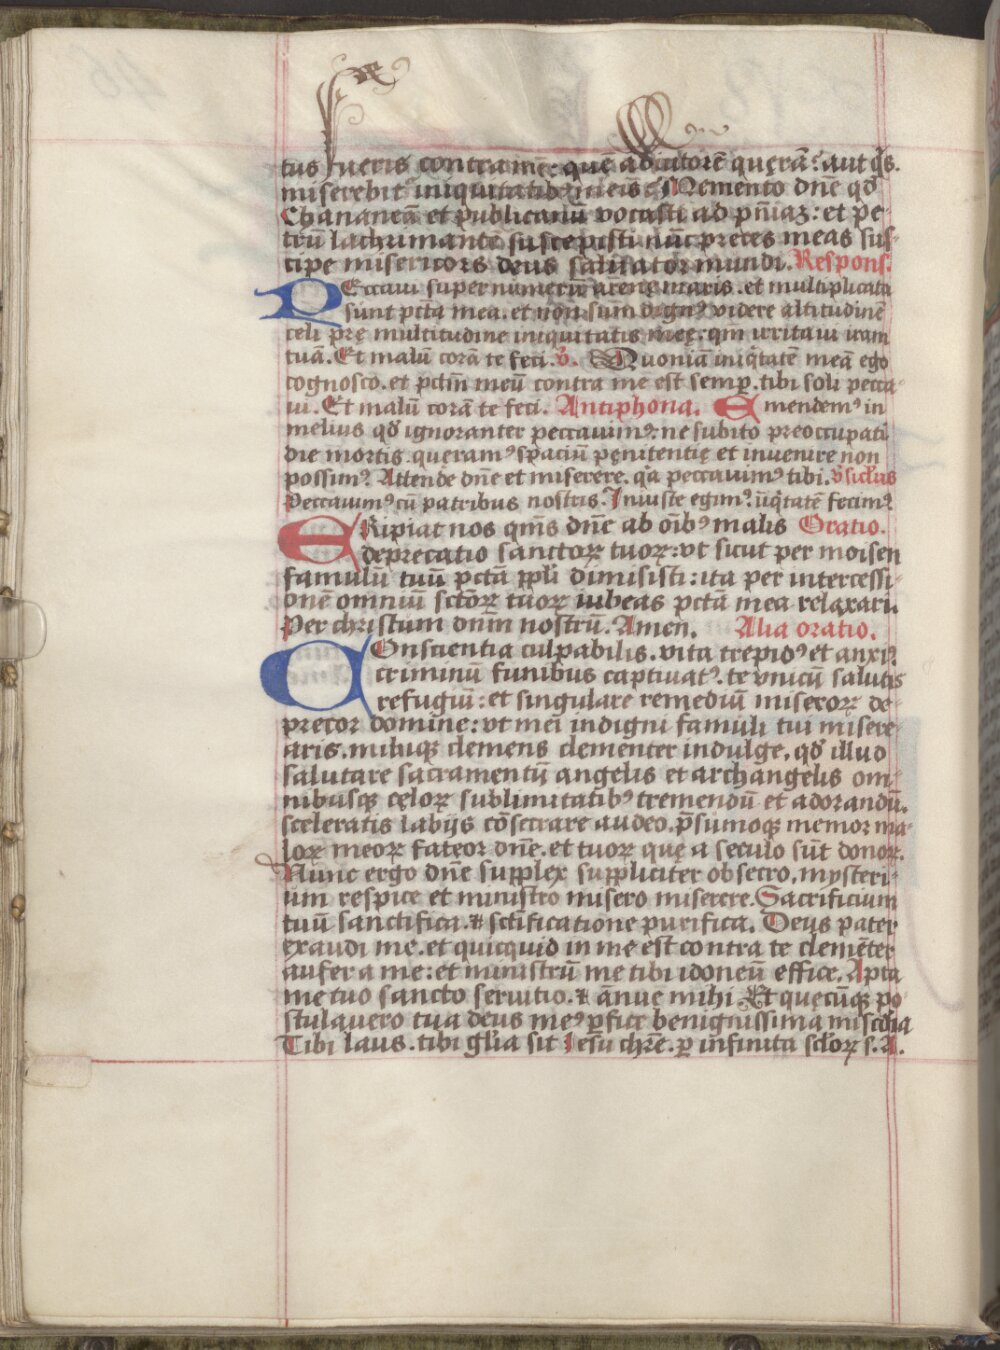 tus fueris contra me: quē adiutorē quęrā? aut q̄s.
miserebit̄ iniquitatibꝰ meis? Memento dn̄e qd̄
Chananeā et publicanū vocasti ad pn̄iaꝫ: et pe-
trū lachrimantē suscepisti nūc preces meas sus-
cipe misericors deus saluator mundi. Respons.
PEccaui super numerū arenę maris. et multiplicata
sunt pctā mea. et non sum dignꝰ videre altitudinē
celi prę multitudine iniquitatis meę: qm̄ irritaui iram
tuā. Et malū corā te feci. v̄. Quoniā iniq̄tatē meā ego
cognosco. et pctm̄ meū contra me est semꝑ. tibi soli pecca-
ui. Et malū corā te feci. Antiphona. Emendemꝰ in
melius qd̄ ignoranter peccauimꝰ: ne subito preoccupati
die mortis. queramꝰ spaciū pęnitentię et inuenire non
possimꝰ. Attende dn̄e et miserere. q̄a peccauimꝰ tibi. v̄siclus
Peccauimꝰ cū patribus nostris. Iniuste egimꝰ. iīq̄tatē fecimꝰ
ERipiat nos qm̄s dn̄e ab oībꝰ malis Oratio.
deprecatio sanctoꝝ tuoꝝ: vt sicut per moisen
famulū tuū pctā ppl̄i dimisisti: ita per intercessi-
onē omniū sctōꝝ tuoꝝ iubeas pctā mea relaxari.
Per christum dn̄m nostrū. Amen. Alia oratio.
COnscientia culpabilis. vita trepidꝰ et anxiꝰ
criminū funibus captiuatꝰ. te vnicū salutis
refugiū: et singulare remediū miseroꝝ de-
precor domine: vt mei indigni famuli tui misere-
aris. mihiqꝫ clemens clementer indulge. qd̄ illud
salutare sacramentū angelis et archangelis om-
nibusqꝫ cęloꝝ sublimitatibꝰ tremendū et adorandū.
sceleratis labijs cōsecrare audeo. p̄sumoqꝫ memor ma-
loꝝ meoꝝ fateor dn̄e. et tuoꝝ quę a seculo sūt donoꝝ.
Nunc ergo dn̄e supplex suppliciter obsecro. mysteri-
um respice et ministro misero miserere. Sacrificium
tuū sanctifica. ⁊ sctīficatione purifica. Deus pater
exaudi me. et quicquid in me est contra te clemēter
aufer a me: et ministrū me tibi idoneū effice. Apta
me tuo sancto seruitio. ⁊ ānue mihi. Et quęcūqꝫ po-
stulauero tua deus meꝰ ꝑfice benignissima misc̄dia
Tibi laus. tibi gl̄ia sit Iesu chr̄e. ꝑ infinita sclōꝝ s. A.